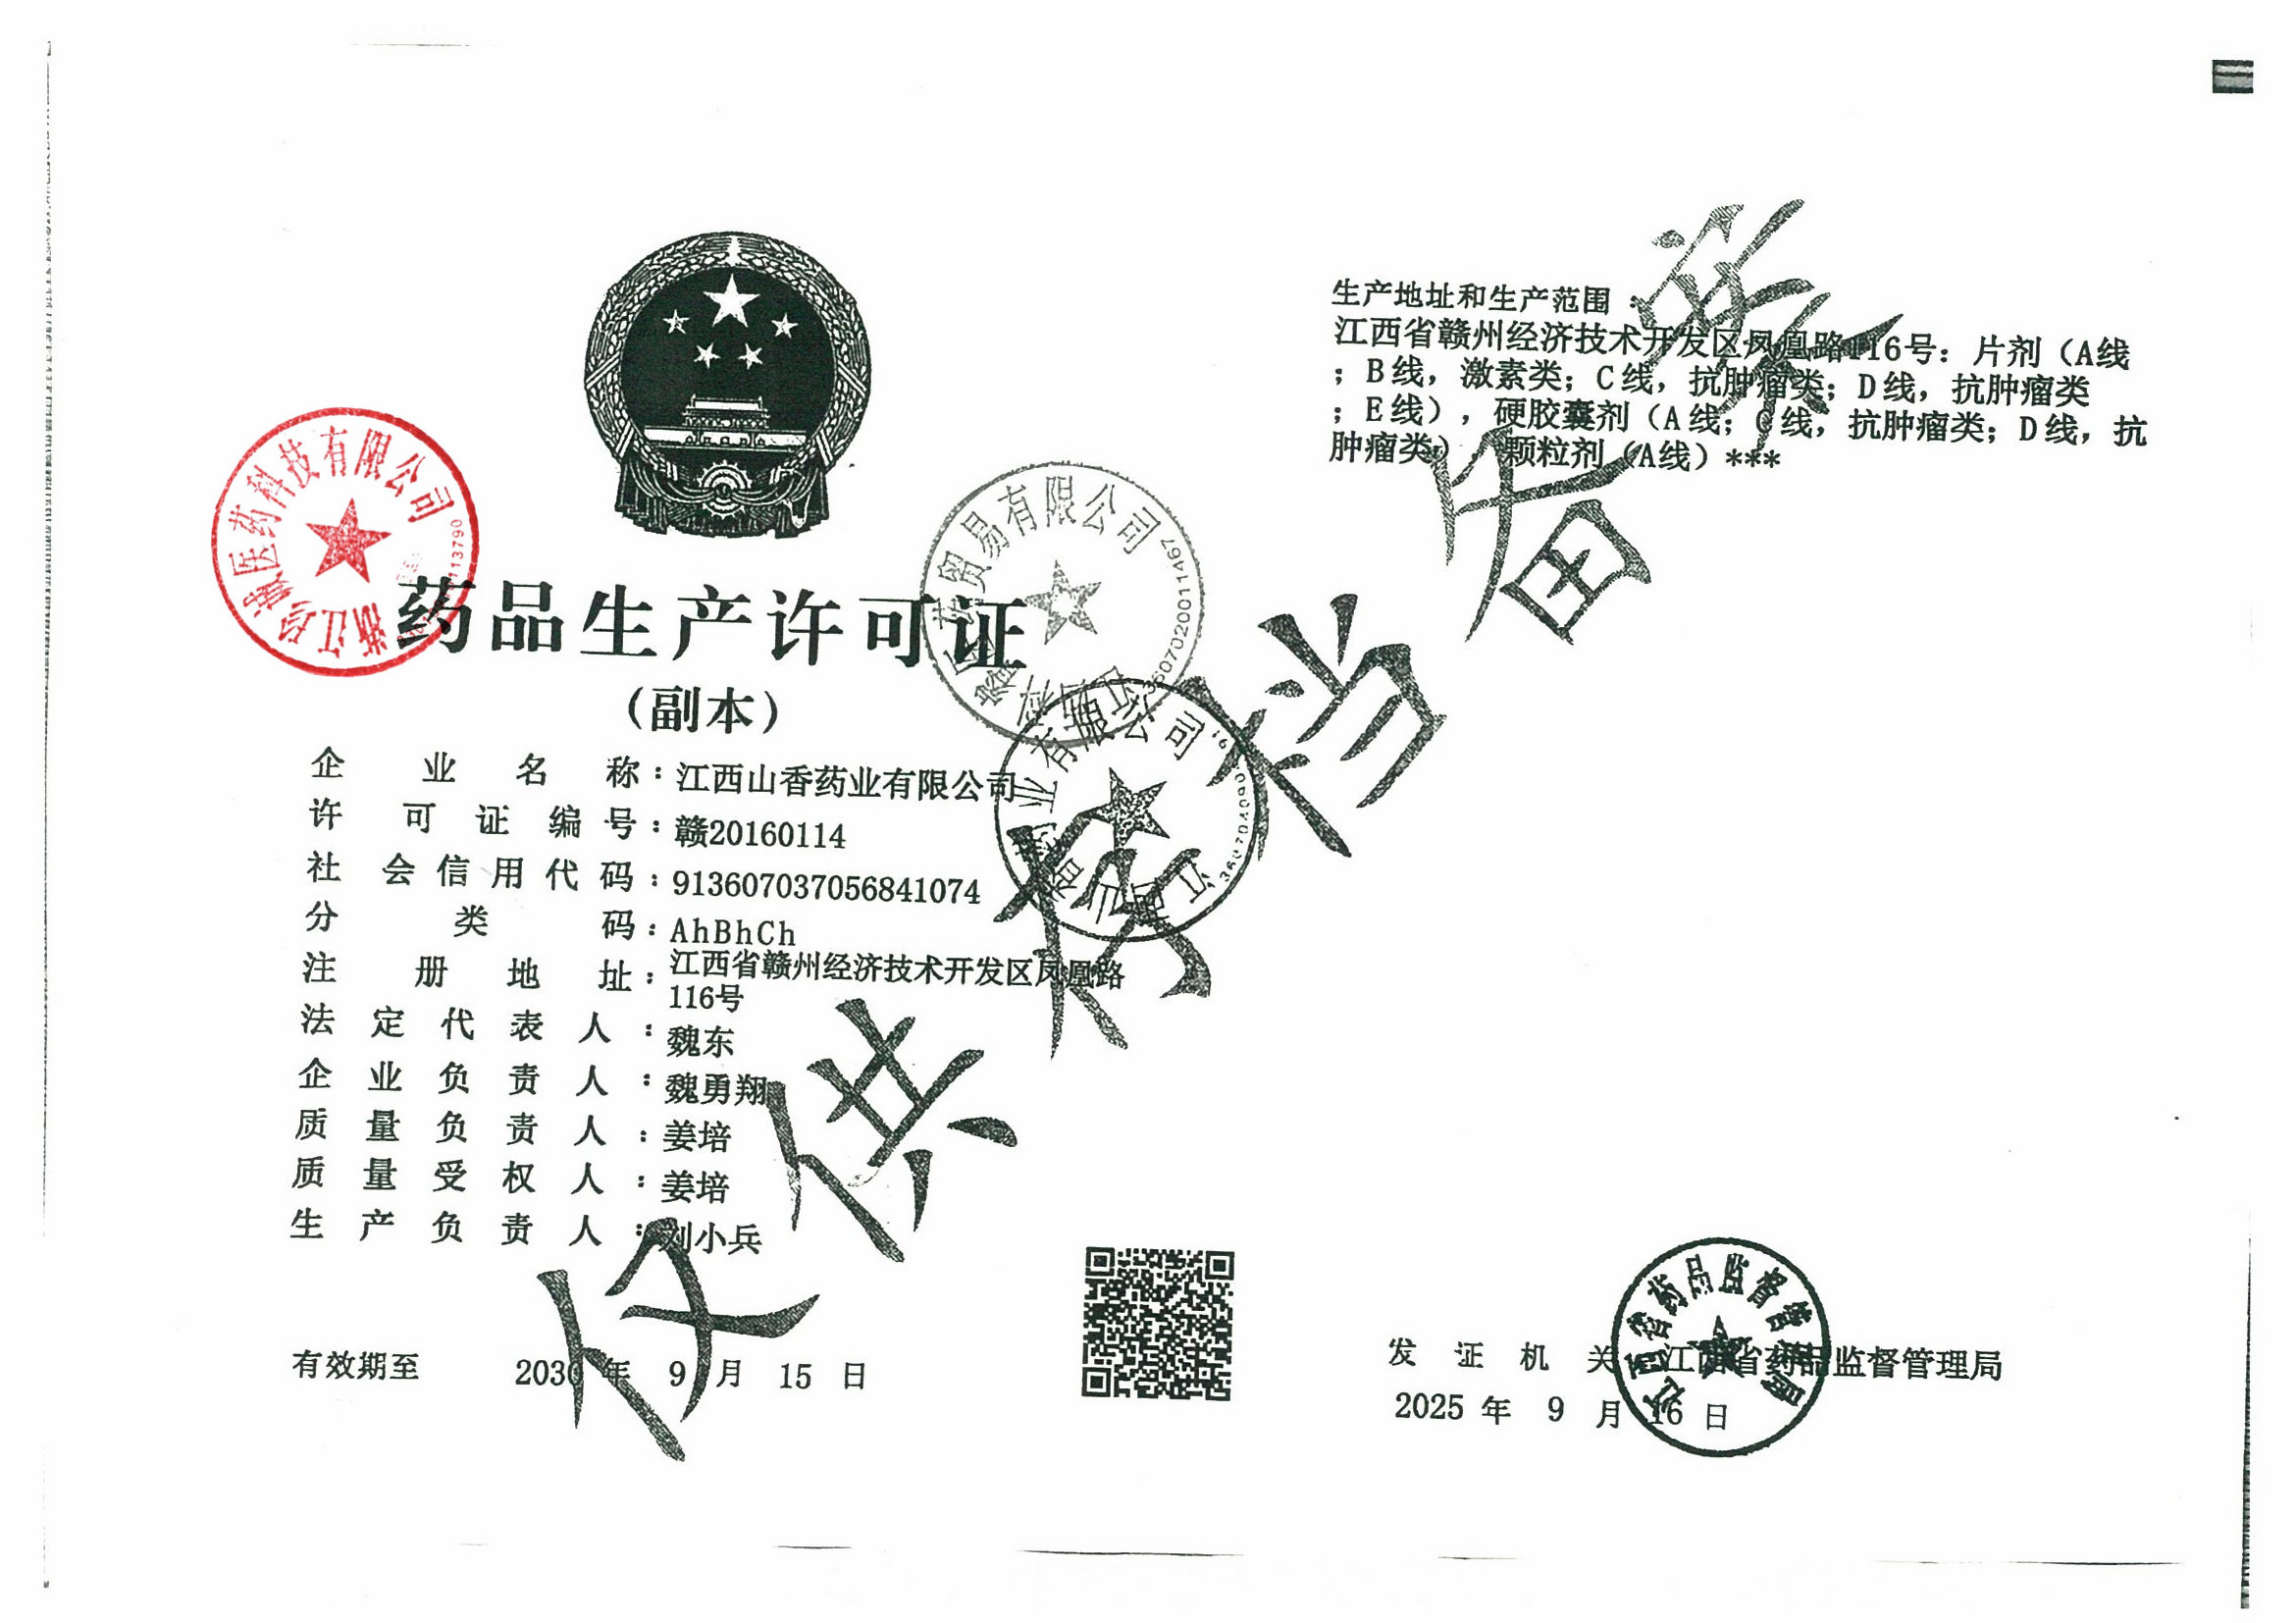 药品生产许可证
（副本）
企业名称：江西山香药业有限公司
许可证编号：赣20160114
社会信用代码：913607037056841074
分类码：AhBhCh
注册地址：江西省赣州经济技术开发区凤凰路
116号
法定代表人：魏东
企业负责人：魏勇翔
质量负责人：姜培
质量受权人：姜培
生产负责人：刘小兵
有效期至 2030 年 9 月 15 日
生产地址和生产范围：
江西省赣州经济技术开发区凤凰路116号：片剂（A线
；B线，激素类；C线，抗肿瘤类；D线，抗肿瘤类
；E线），硬胶囊剂（A线；C线，抗肿瘤类；D线，抗
肿瘤类），颗粒剂（A线）***
发证机关 江西省药品监督管理局
2025 年 9 月 16 日
江西省药品监督管理局
医药科技有限公司
贸易有限公司
3607020011467
药业有限公司
仅供 档备案